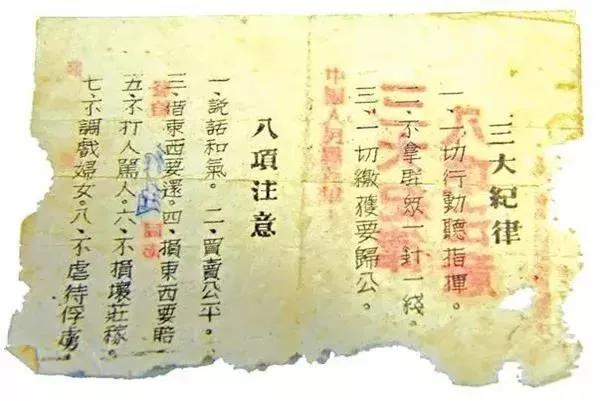 三大紀律
一、一切行動聽指揮。
二、不拿群眾一針一綫。
三、一切繳獲要歸公。
中國人民
八項注意
一、説話和氣。二、買賣公平。
三、借東西要還。四、損東西要賠
五、不打人罵人。六、不損壞莊稼。
七、不調戲婦女。八、不虐待俘虜。